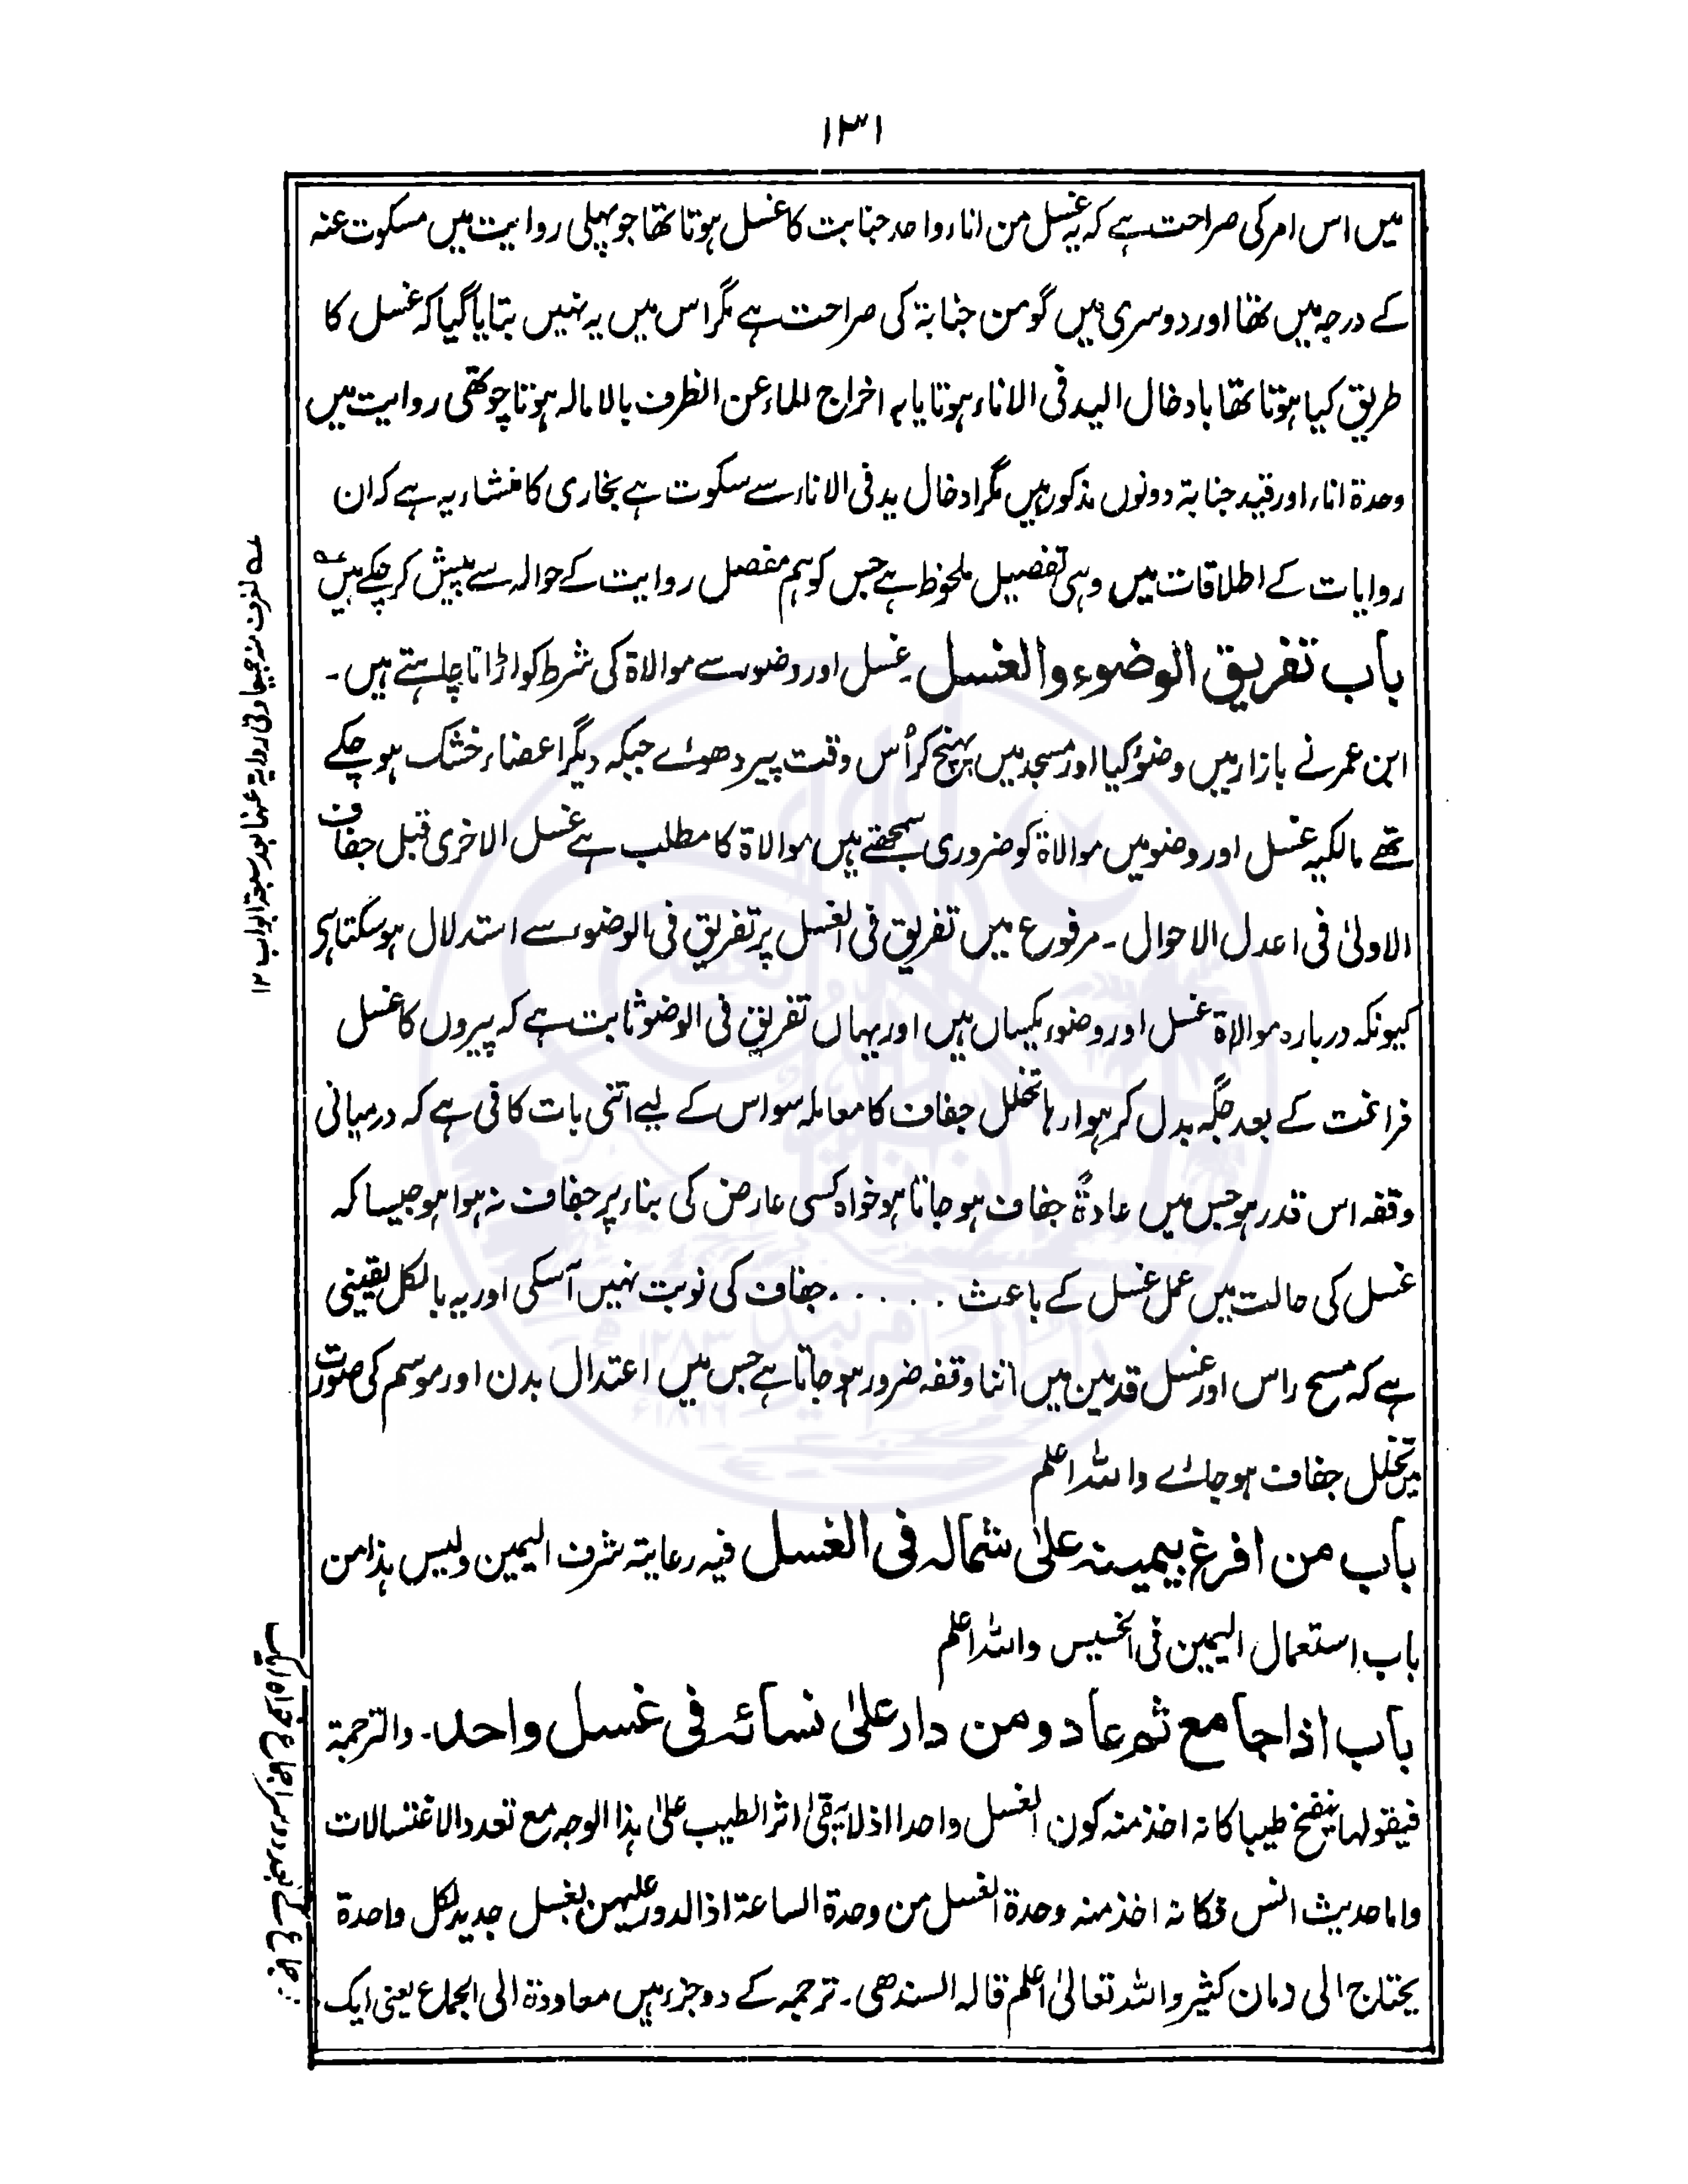 ۱۳۱
میں اس امر کی صراحت ہے کہ یہ غسل من اناء واحد جنابت کا غسل ہوتا تھا جو پہلی روایت میں مسکوت عنہ
کے درجہ میں تھا اور دوسری میں گو من جنابة کی صراحت ہے مگر اس میں یہ نہیں بتایا گیا کہ غسل کا
طریق کیا ہوتا تھا بادخال الید فی الاناء ہوتا یا بہ اخراج الماء عن الظرف بالامالہ ہوتا چوتھی روایت میں
وحدة اناء اور قید جنابة دونوں مذکور ہیں مگر ادخال ید فی الاناء سے سکوت ہے بخاری کا منشاء یہ ہے کہ ان
روایات کے اطلاقات میں وہی تفصیل ملحوظ ہے جس کو ہم مفصل روایت کے حوالہ سے پیش کر چکے ہیں عہ
باب تفریق الوضوء والغسل ۔ غسل اور وضوء سے موالاة کی شرط کو اڑانا چاہتے ہیں ۔
ابن عمر نے بازار میں وضؤ کیا اور مسجد میں پہنچ کر اُس وقت پیر دھوئے جبکہ دیگر اعضاء خشک ہو چکے
تھے مالکیہ غسل اور وضو میں موالاة کو ضروری سمجھتے ہیں موالاة کا مطلب ہے غسل الاخری قبل جفاف
الاولیٰ فی اعدل الاحوال ۔ مرفوع میں تفریق فی الغسل پر تفریق فی الوضوء سے استدلال ہو سکتا ہی
کیونکہ دربارہ موالاة غسل اور وضوء یکساں ہیں اور یہاں تفریق فی الوضو ثابت ہے کہ پیروں کا غسل
فراغت کے بعد جگہ بدل کر ہوا رہا تخلل جفاف کا معاملہ سو اس کے لیے اتنی بات کافی ہے کہ درمیانی
وقفہ اس قدر ہو جس میں عادةً جفاف ہو جاتا ہو خواہ کسی عارض کی بناء پر جفاف نہ ہوا ہو جیسا کہ
غسل کی حالت میں عمل غسل کے باعث ۔ ۔ ۔ ۔ ۔ ۔ جفاف کی نوبت نہیں آسکی اور یہ بالکل یقینی
ہے کہ مسح راس اور غسل قدمین میں اتنا وقفہ ضرور ہو جاتا ہے جس میں اعتدال بدن اور موسم کی صورت
میں تخلل جفاف ہو جائے واللہ اعلم
باب من افرغ بیمینہ علیٰ شمالہ فی الغسل فیہ رعایتہ شرف الیمین ولیس ہذا من
باب استعمال الیمین فی الخسیس واللہ اعلم
باب اذا جامع ثم عاد ومن دار علیٰ نسائہ فی غسل واحد ۔ والترجمۃ
فیقولہا ینضخ طیبا کانہ اخذ منہ کون الغسل واحدا اذ لا یبقیٰ اثر الطیب علیٰ ہذا الوجہ مع تعدد الاغتسالات
واما حدیث انس فکانہ اخذ منہ وحدة الغسل من وحدة الساعة اذ الدور علیہن بغسل جدید لکل واحدة
یحتاج الی دمان کثیر واللہ تعالیٰ اعلم قالہ السندھی ۔ ترجمہ کے دو جزء ہیں معاودة الی الجماع یعنی ایک